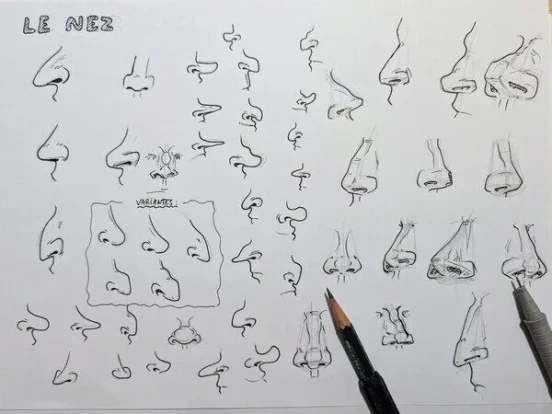 LE NEZ
VARIANTES